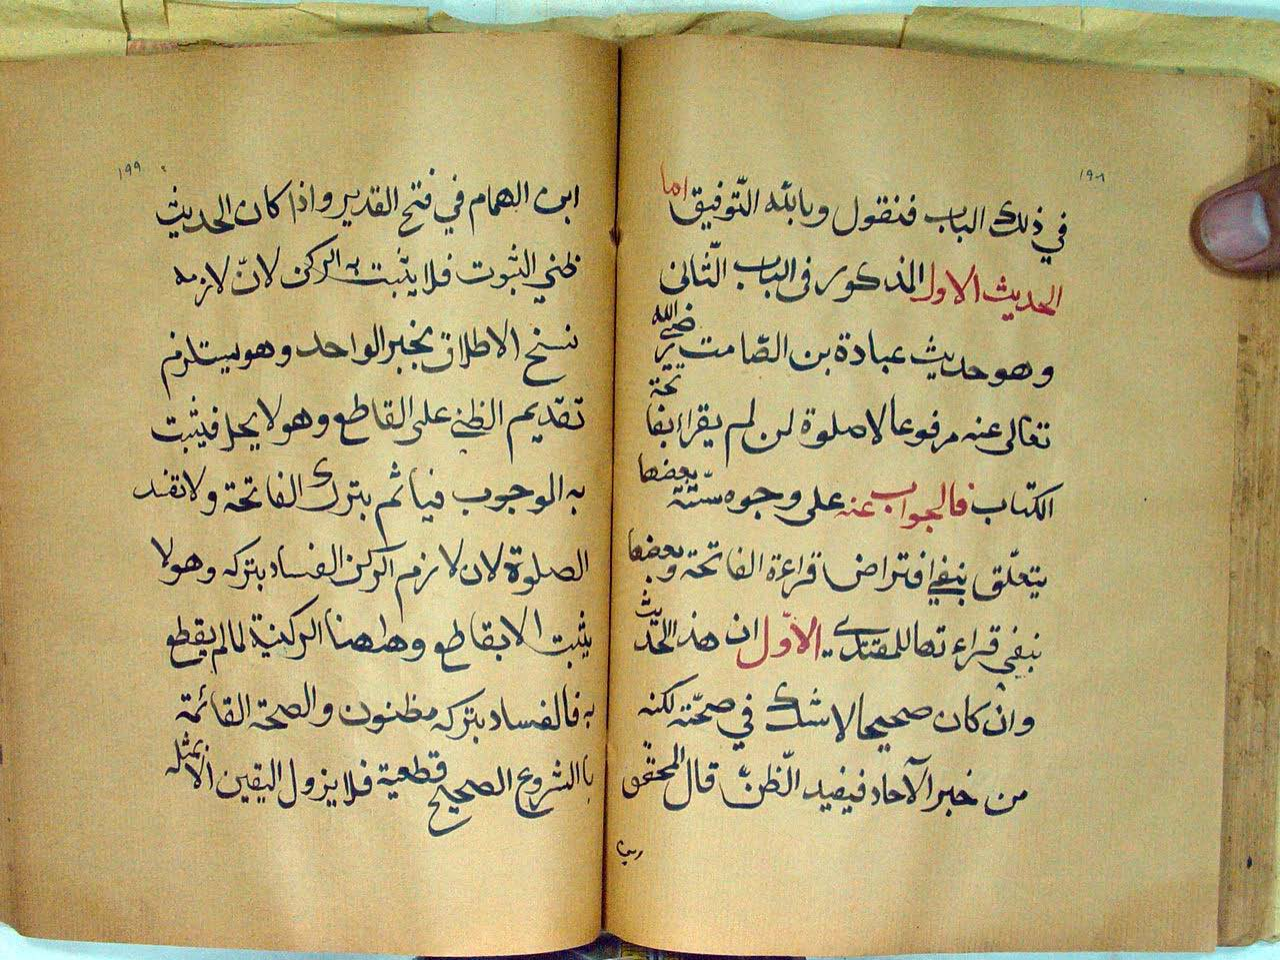 ١٩٨
في ذلك الباب فنقول وبالله التّوفيق اما
الحديث الاول المذكور فى الباب الثّانى
وهو حديث عبادة بن الصّامت رضي الله
تعالى عنه مرفوعا لا صلوة لمن لم يقرا بفاتحة
الكتاب فالجواب عنه على وجوه ستّة بعضها
يتعلّق بنفي افتراض قراءة الفاتحة وبعضها
بنفي قراءتها للمقتدي الاوّل ان هذا الحديث
وان كان صحيحا لا شك في صحّته لكنه
من خبر الآحاد فيفيد الظّنّ قال المحقق
ابن
١٩٩
ابن الهمام في فتح القدير واذا كان الحديث
ظني الثبوت فلا يثبت به الركن لانّ لازمه
نسخ الاطلاق بخبر الواحد وهو يستلزم
تقديم الظني على القاطع وهو لا يحل فيثبت
به الوجوب فياثم بترك الفاتحة ولا تفسد
الصلوة لان لازم الركن الفساد بتركه وهو لا
يثبت الا بقاطع وههنا الركنية لما لم يقطع
به فالفساد بتركه مظنون والصحة القائمة
بالشروع الصحيح قطعية فلا يزول اليقين الا بمثله